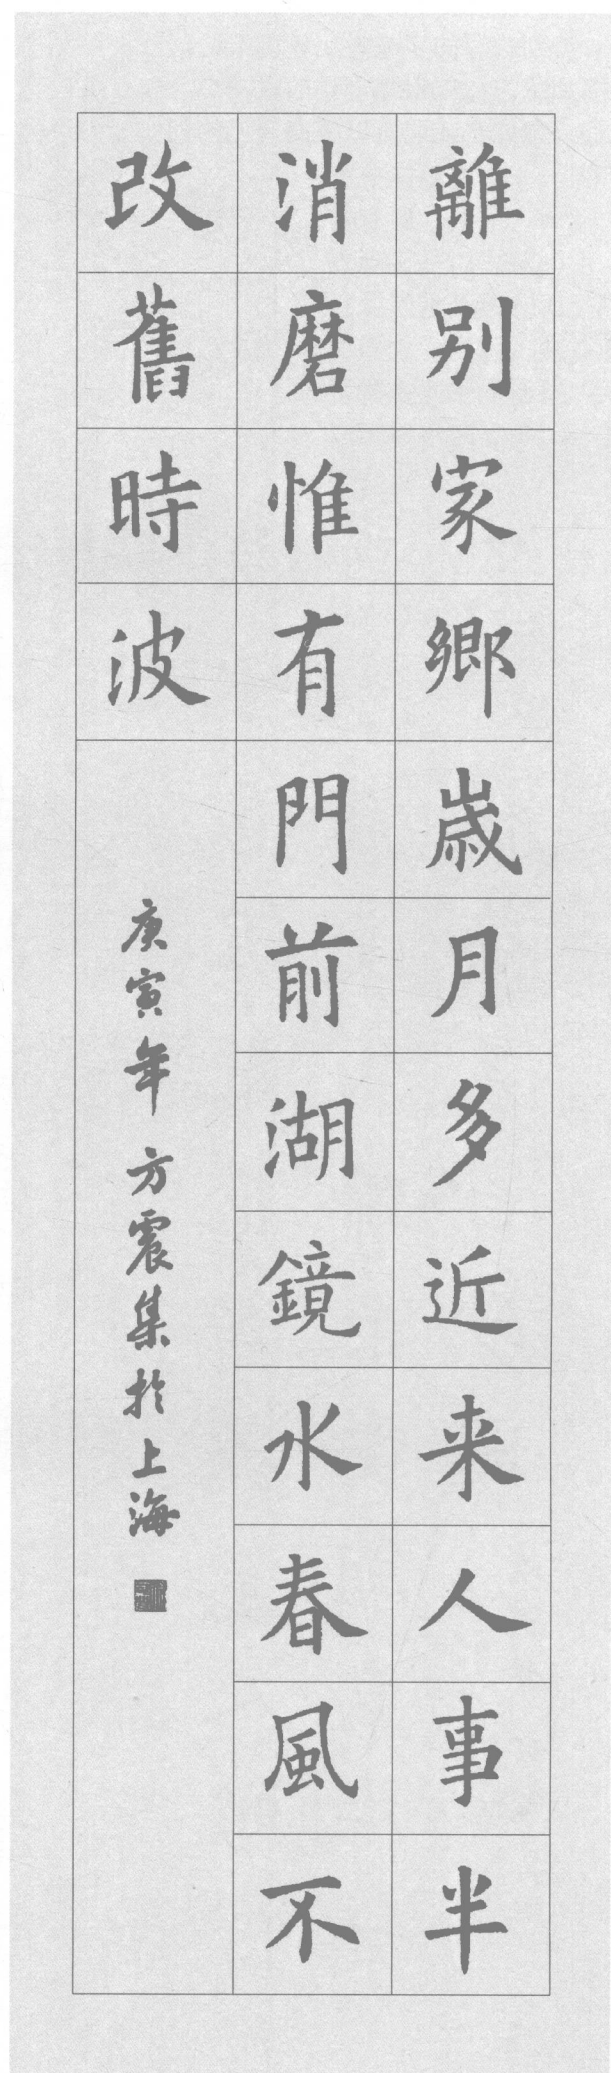 離别家鄉歳月多近来人事半
消磨惟有門前湖鏡水春風不
改舊時波
庚寅年方震集於上海